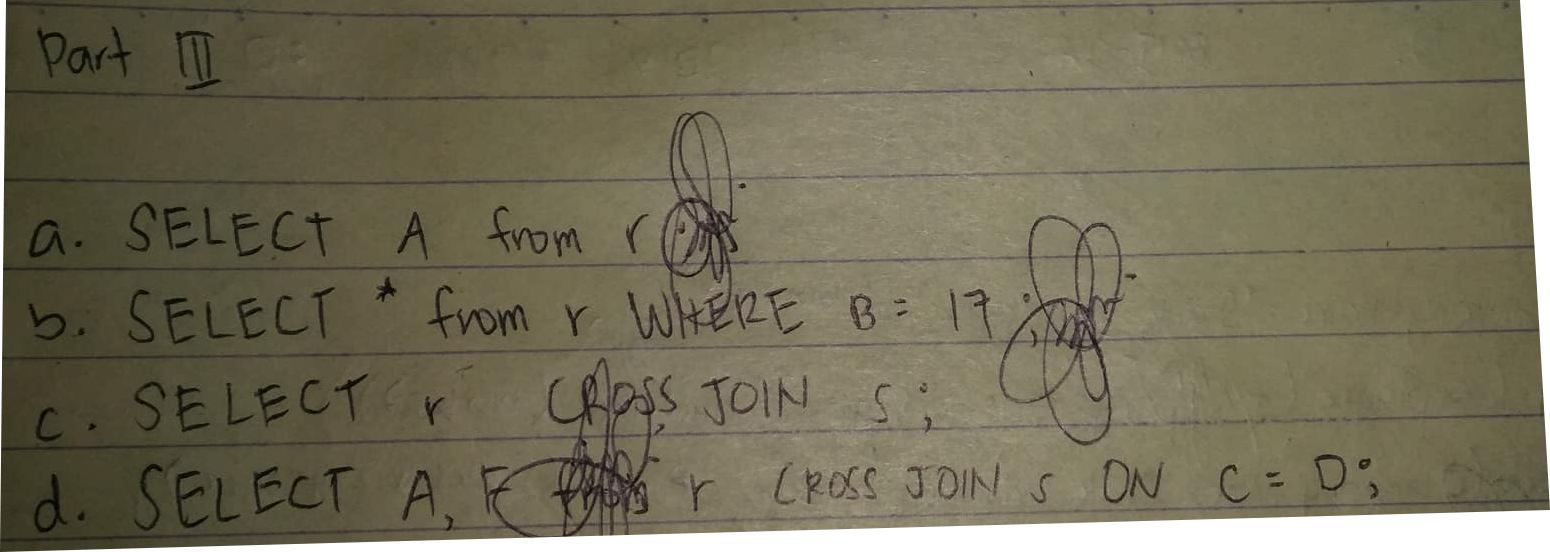 Part III
a. SELECT A from r
b. SELECT * from r WHERE B = 17 ;
c. SELECT r CROSS JOIN s ;
d. SELECT A, F from r CROSS JOIN s ON C = D;